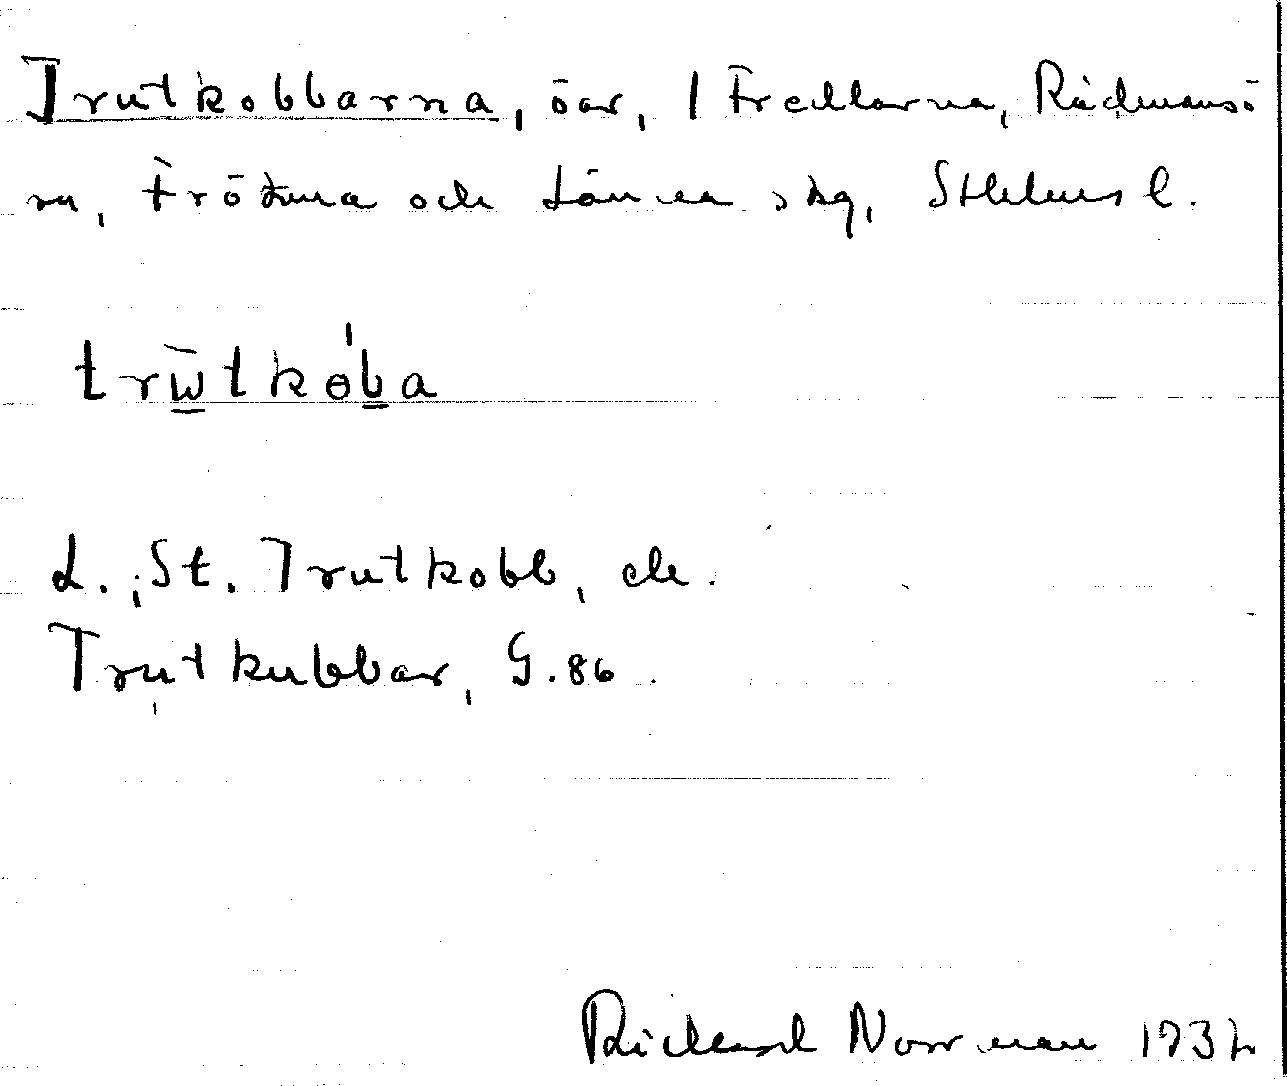 Trutkobbarna, öar, / Fredlarna, Rådmansö
sn, Frötuna och Länna skg, Sthlms l.
trw̄tkⱺb̲a
L., St. Trutkobb, ek.
Trutkubbar, G. 86.
Rickard Norrman 1932